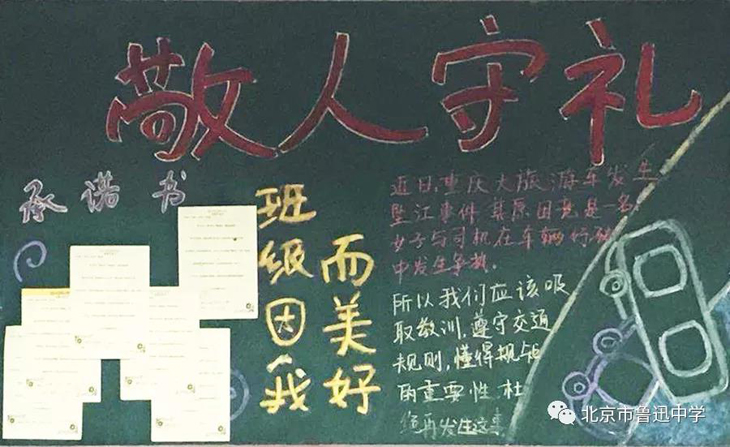 敬人守礼
承诺书
班级因我
而美好
近日,重庆大旅游车发生
坠江事件,其原因竟是一名
女子与司机在车辆行驶
中发生争执。
所以我们应该吸
取教训,遵守交通
规则,懂得规矩
的重要性,杜
绝再发生这
北京市鲁迅中学